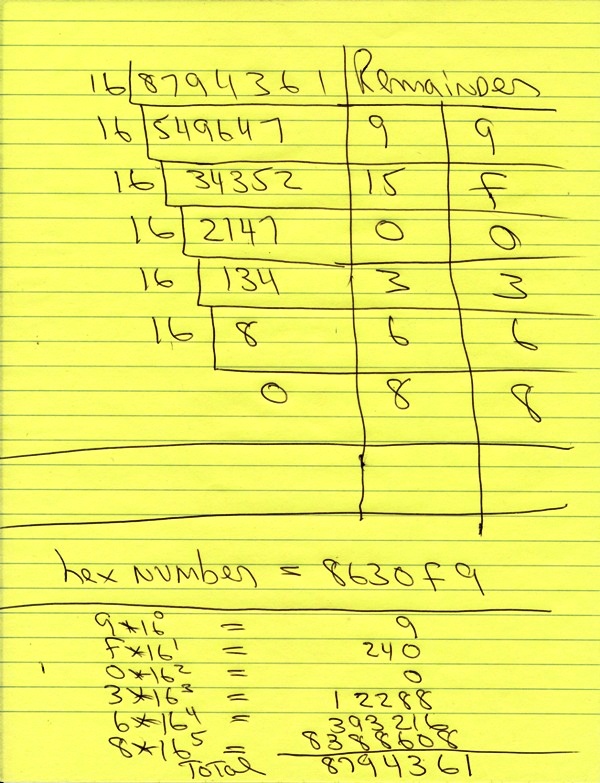 16 8794361 Remainder
16 549647 9 9
16 34352 15 f
16 2147 0 0
16 134 3 3
16 8 6 6
0 8 8
hex number = 8630f9
9*16⁰ = 9
f*16¹ = 240
0*16² = 0
3*16³ = 12288
6*16⁴ = 393216
8*16⁵ = 8388608
Total 8794361